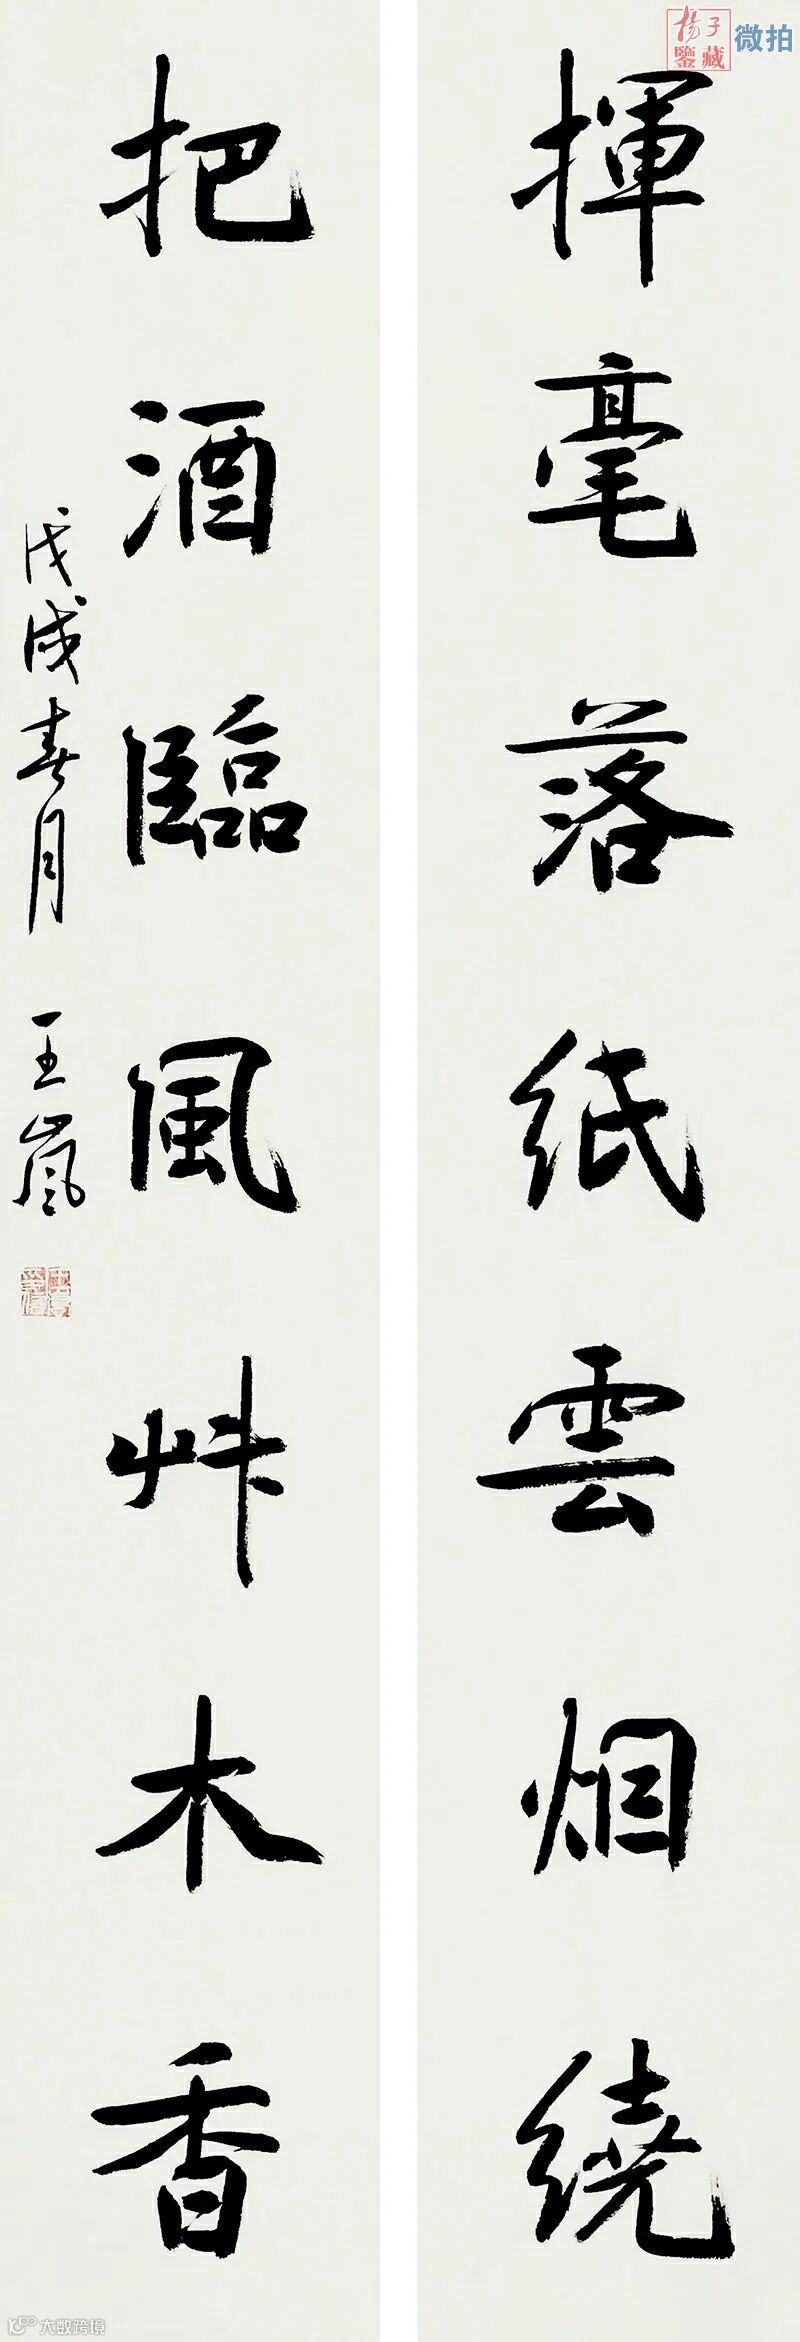 揮毫落紙雲烟繞
把酒臨風艸木香
戊戌春月 王嵐
楊子鑒藏
微拍
大数跨境